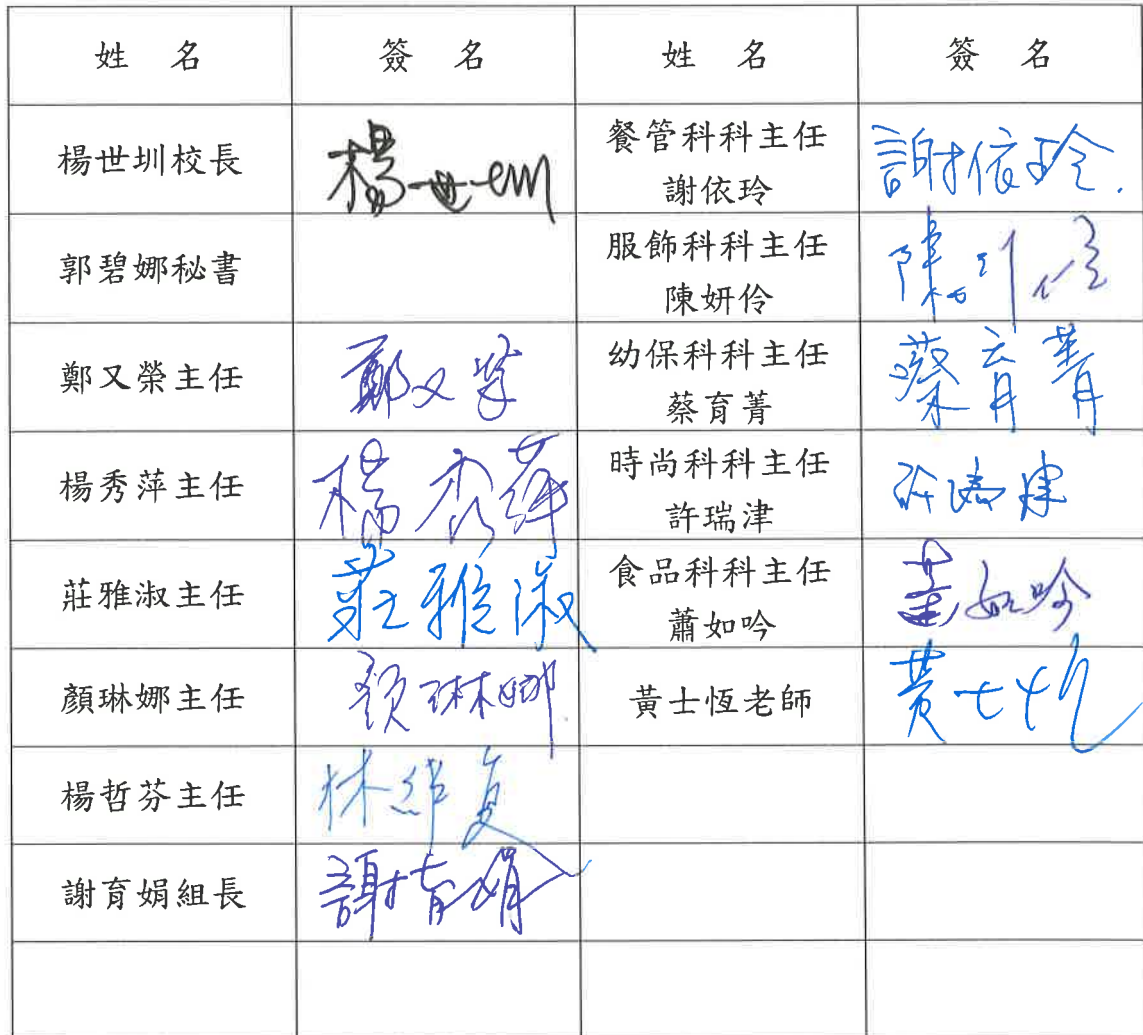 姓 名 簽 名 姓 名 簽 名
楊世圳校長 楊世圳 餐管科科主任 謝依玲 謝依玲
郭碧娜秘書 服飾科科主任 陳妍伶 陳妍伶
鄭又榮主任 鄭又榮 幼保科科主任 蔡育菁 蔡育菁
楊秀萍主任 楊秀萍 時尚科科主任 許瑞津 許瑞津
莊雅淑主任 莊雅淑 食品科科主任 蕭如吟 蕭如吟
顏琳娜主任 顏琳娜 黃士恆老師 黃士恆
楊哲芬主任 林維夏
謝育娟組長 謝育娟